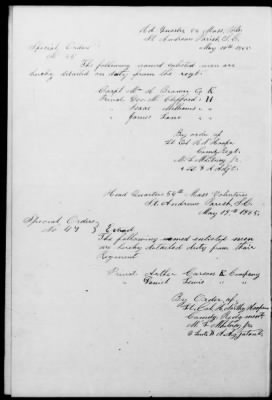 Hd Quarters 54 Mass Vols
St Andrews Parish S.C.
May 14th 1865
Special Orders
No
The following named enlisted men are
hereby detailed on duty from the regt.
Corpl Wm H Brown Co K
Privat Geo. M. Clifford " H
" Isaac Williams "
" James Lane "
By order of
Lt Col H N Hooper
Comdg Regt.
1 Lt & A Adjt.
Head Quarters 54th Mass Volunteers
St. Andrews Parish S.C.
May 15th 1865
Special Orders
No 47 } Extract
The following named enlisted men
are hereby detached duty from their
Regiment
Privat Arthur Carson K Company
" Daniel Lewis " "
By Order of
Lt. Col. Hooper
Comdg Regiment